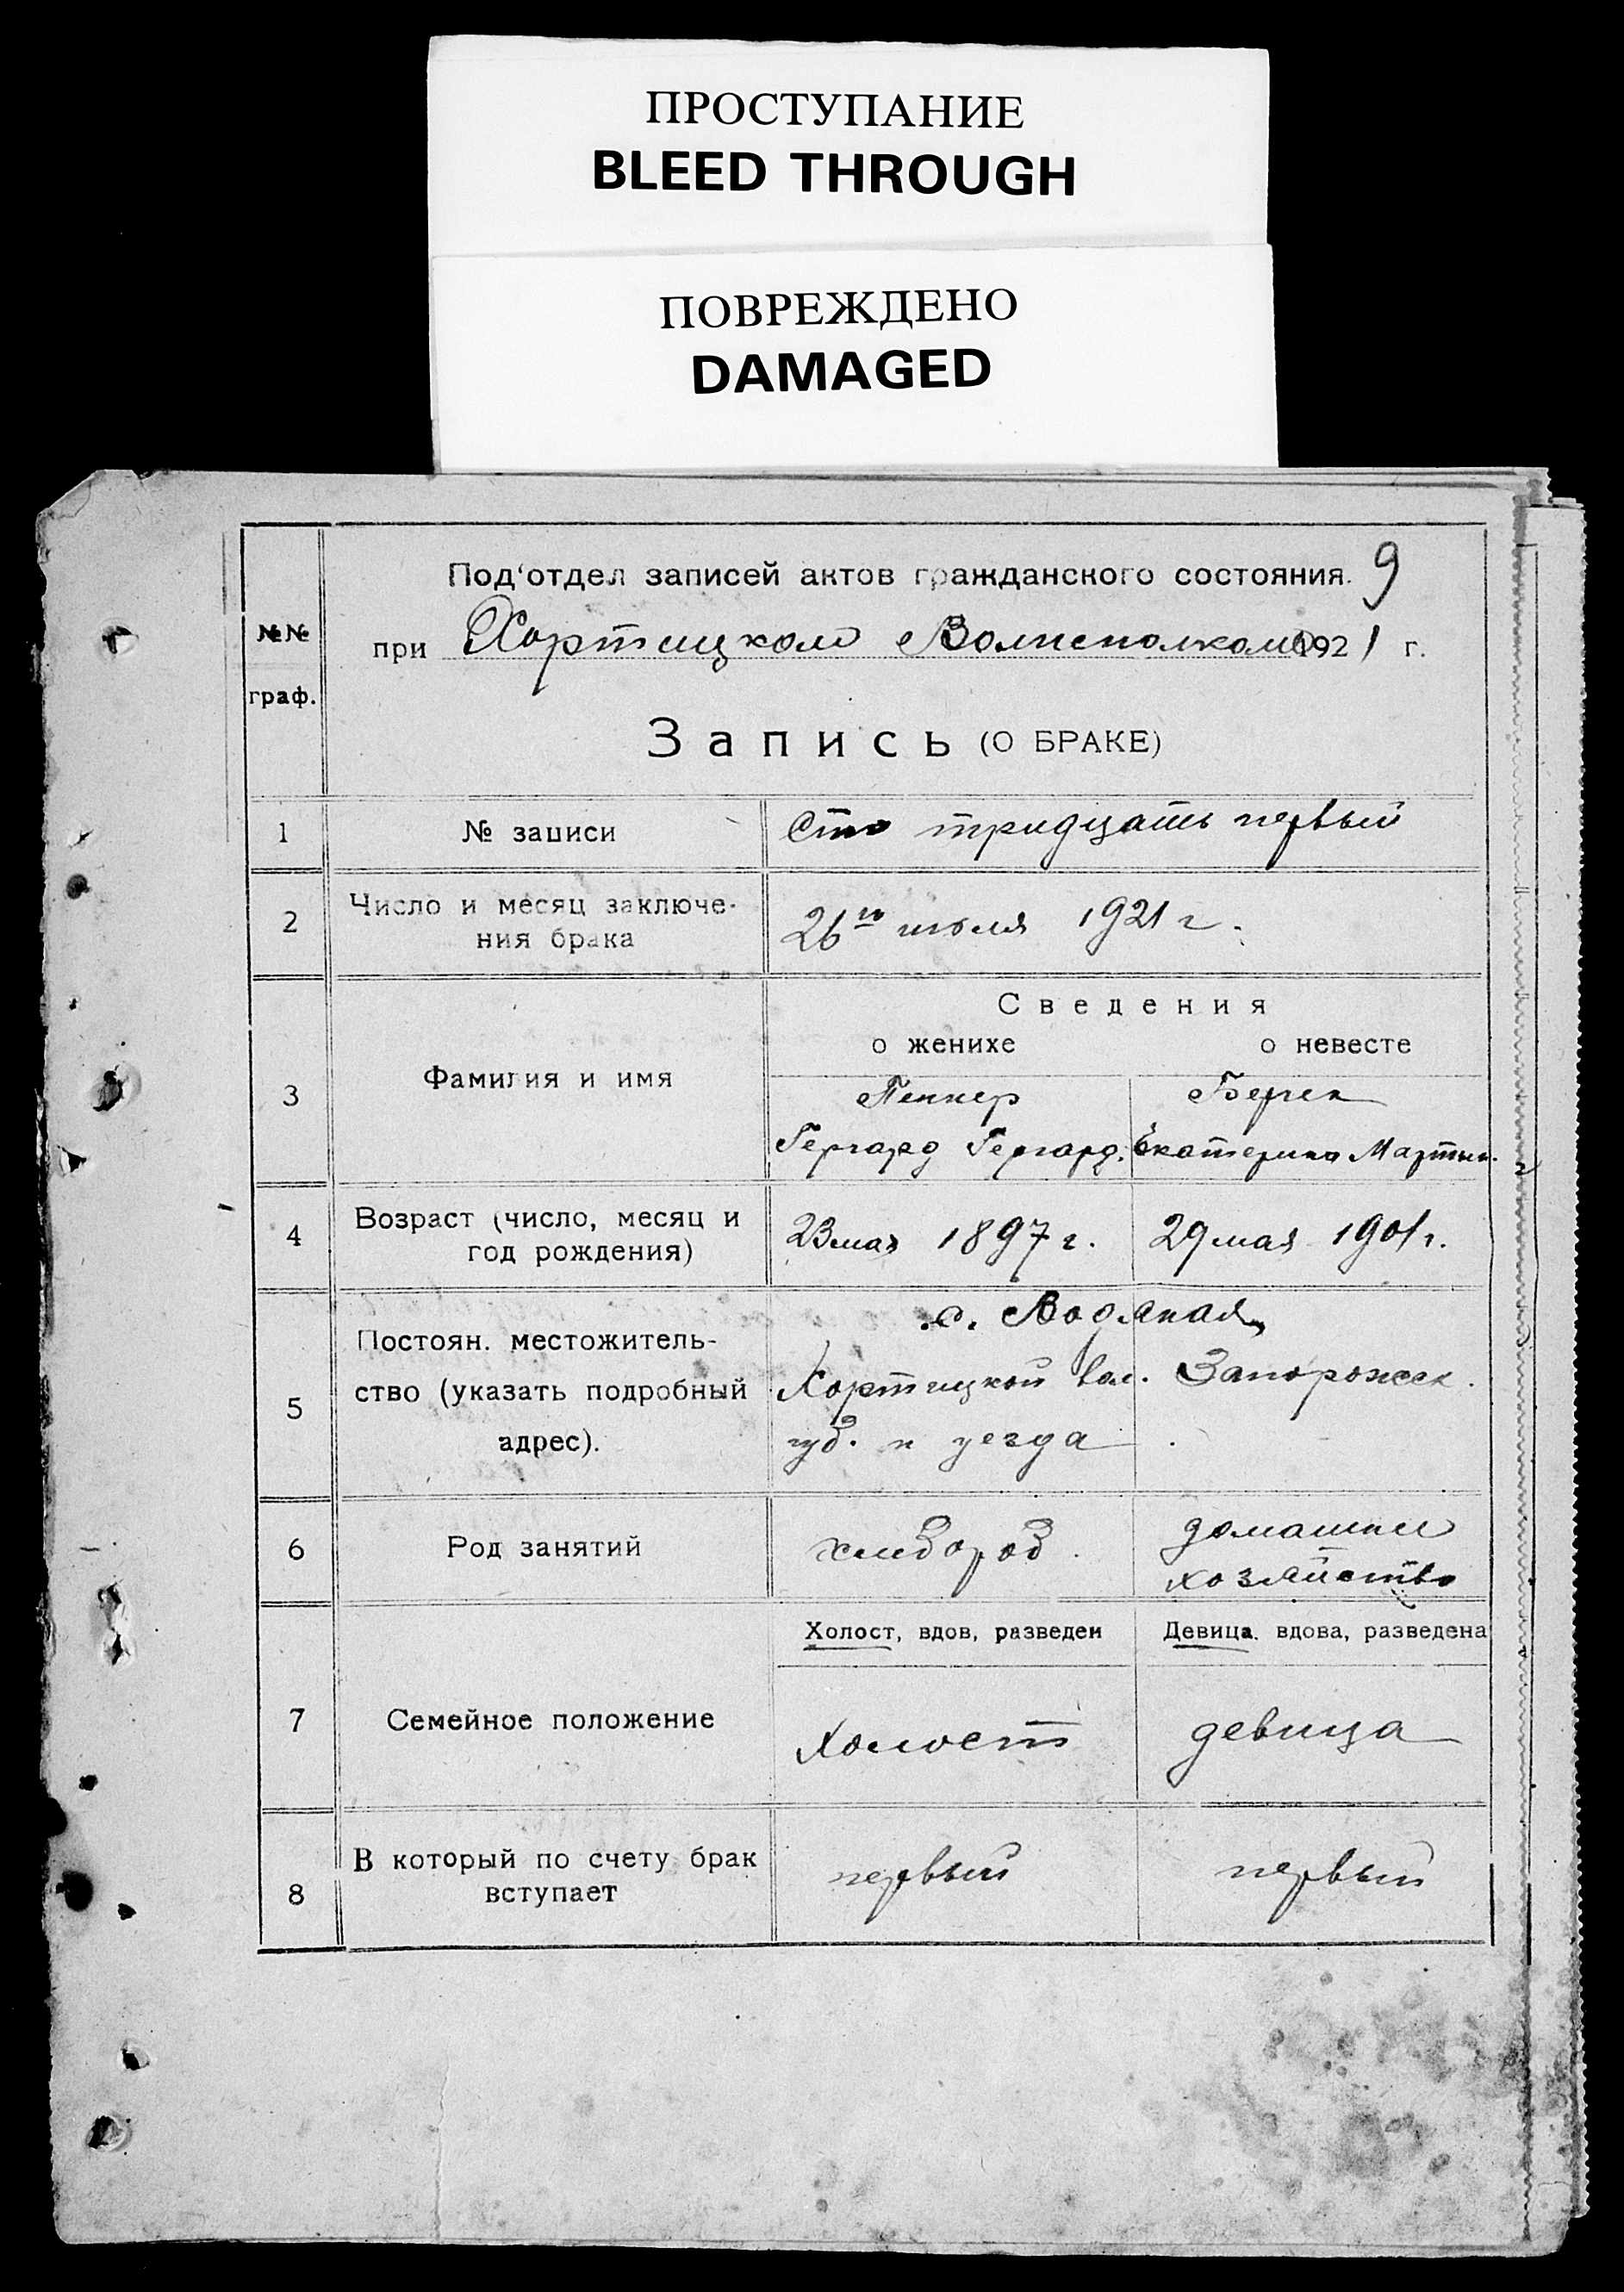 ПРОСТУПАНИЕ
BLEED THROUGH
ПОВРЕЖДЕНО
DAMAGED
Под'отдел записей актов гражданского состояния. 9
№№ граф.
при Хортицком Волисполкоме 1921 г.
Запись (О БРАКЕ)
1 № записи Сто тридцать первый
2 Число и месяц заключе-
ния брака 26го июля 1921 г.
Сведения
о женихе о невесте
3 Фамилия и имя Пеннер Берген
Гергард Гергард. Екатерина Мартын.
4 Возраст (число, месяц и
год рождения) 23 мая 1897 г. 29 мая 1901 г.
с. Водяная,
5 Постоян. местожитель-
ство (указать подробный
адрес). Хортицкой вол. Запорожск.
губ. и уезда
6 Род занятий хлебороб. домашнее
хозяйство
Холост, вдов, разведен Девица, вдова, разведена
7 Семейное положение холост девица
8 В который по счету брак
вступает первый первый